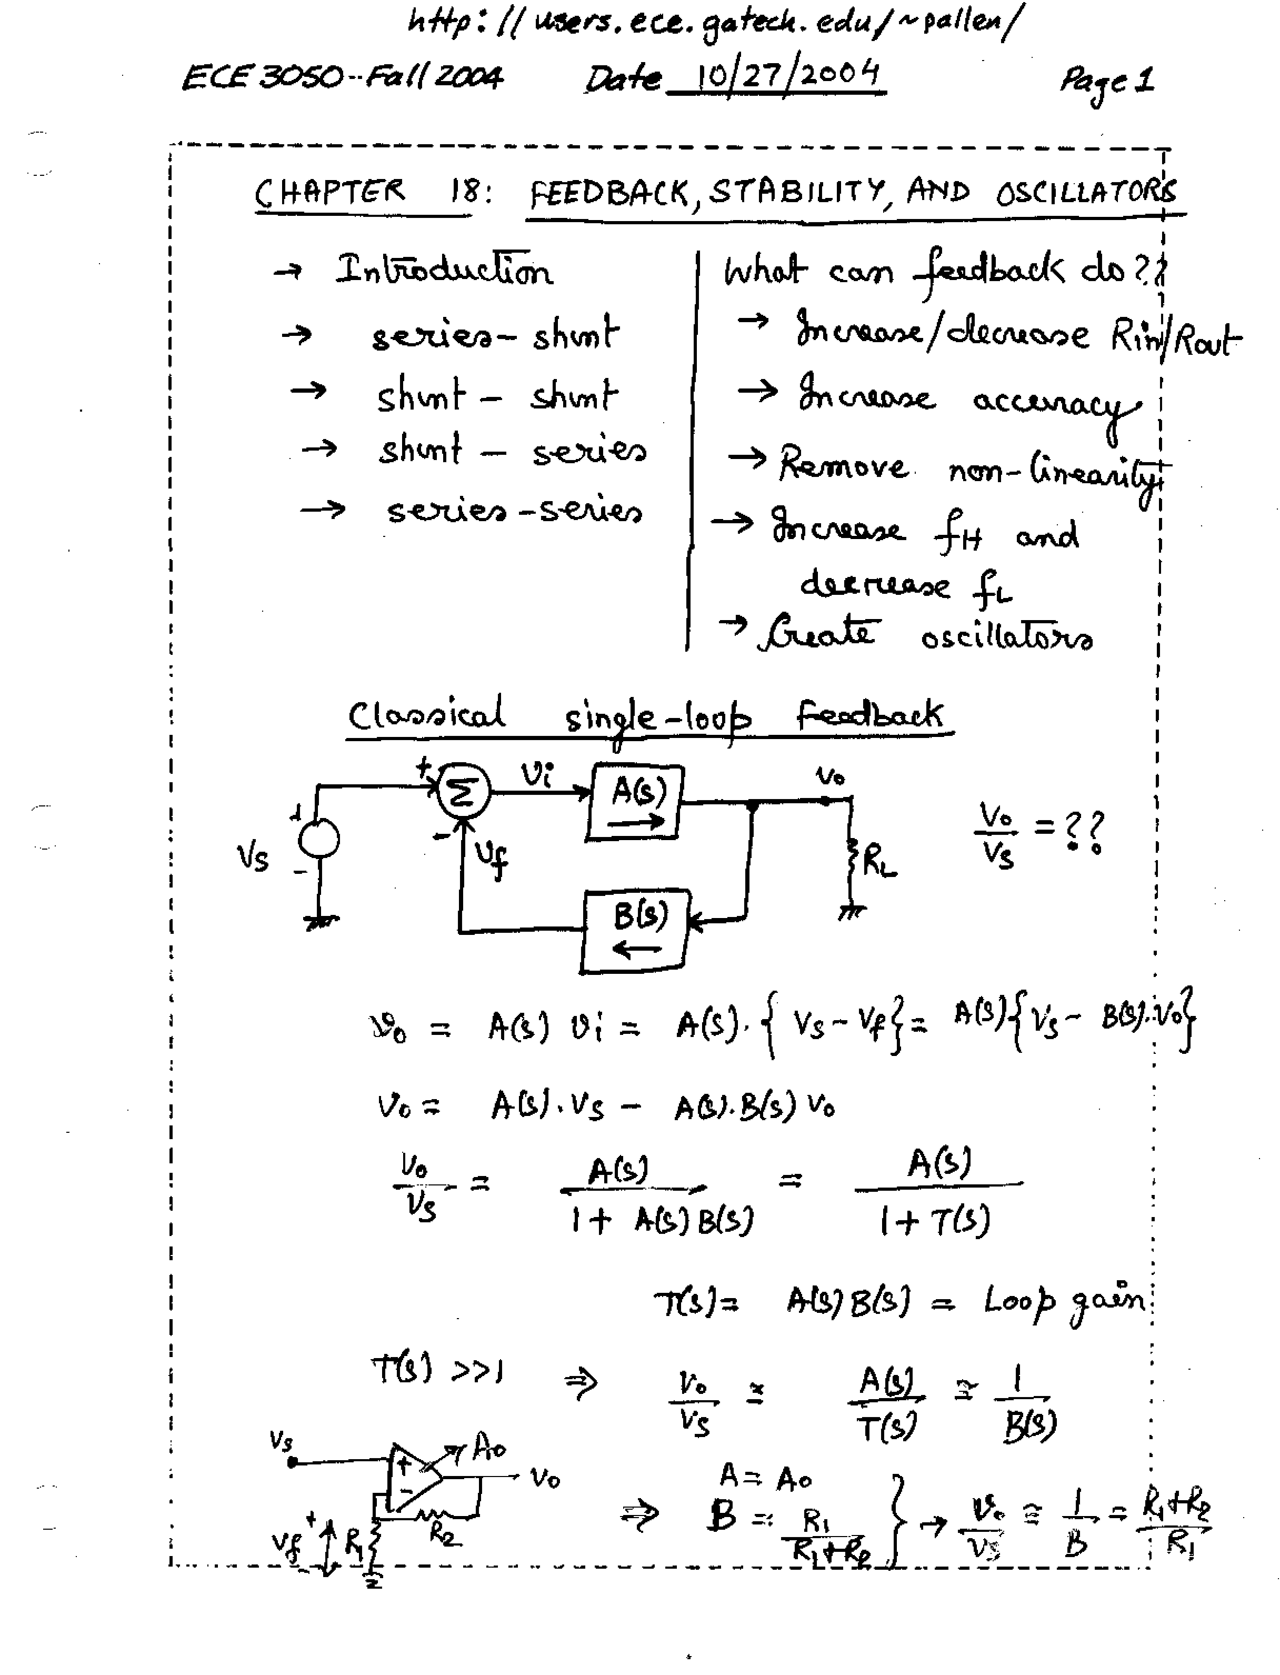 http://users.ece.gatech.edu/~pallen/
ECE 3050--Fall 2004 Date 10/27/2004 Page 1
CHAPTER 18: FEEDBACK, STABILITY, AND OSCILLATORS
→ Introduction
→ series-shunt
→ shunt - shunt
→ shunt - series
→ series-series
What can feedback do??
→ Increase/decrease Rin/Rout
→ Increase accuracy
→ Remove non-linearity
→ Increase fH and
decrease fL
→ Create oscillators
Classical single-loop Feedback
+ Σ vi A(s) → vo
+ Vs - - vf RL Vo/Vs = ??
B(s) ←
vo = A(s) vi = A(s).{Vs - Vf} = A(s){Vs - B(s).Vo}
Vo = A(s).Vs - A(s).B(s) Vo
Vo/Vs = A(s)/(1 + A(s)B(s)) = A(s)/(1 + T(s))
T(s) = A(s)B(s) = Loop gain
T(s) >>1 ⇒ Vo/Vs ≅ A(s)/T(s) ≅ 1/B(s)
Vs + - A0 Vo
Vf + - R1 R2
⇒ A = A0
B = R1/(R1+R2) } → Vo/Vs ≅ 1/B = (R1+R2)/R1